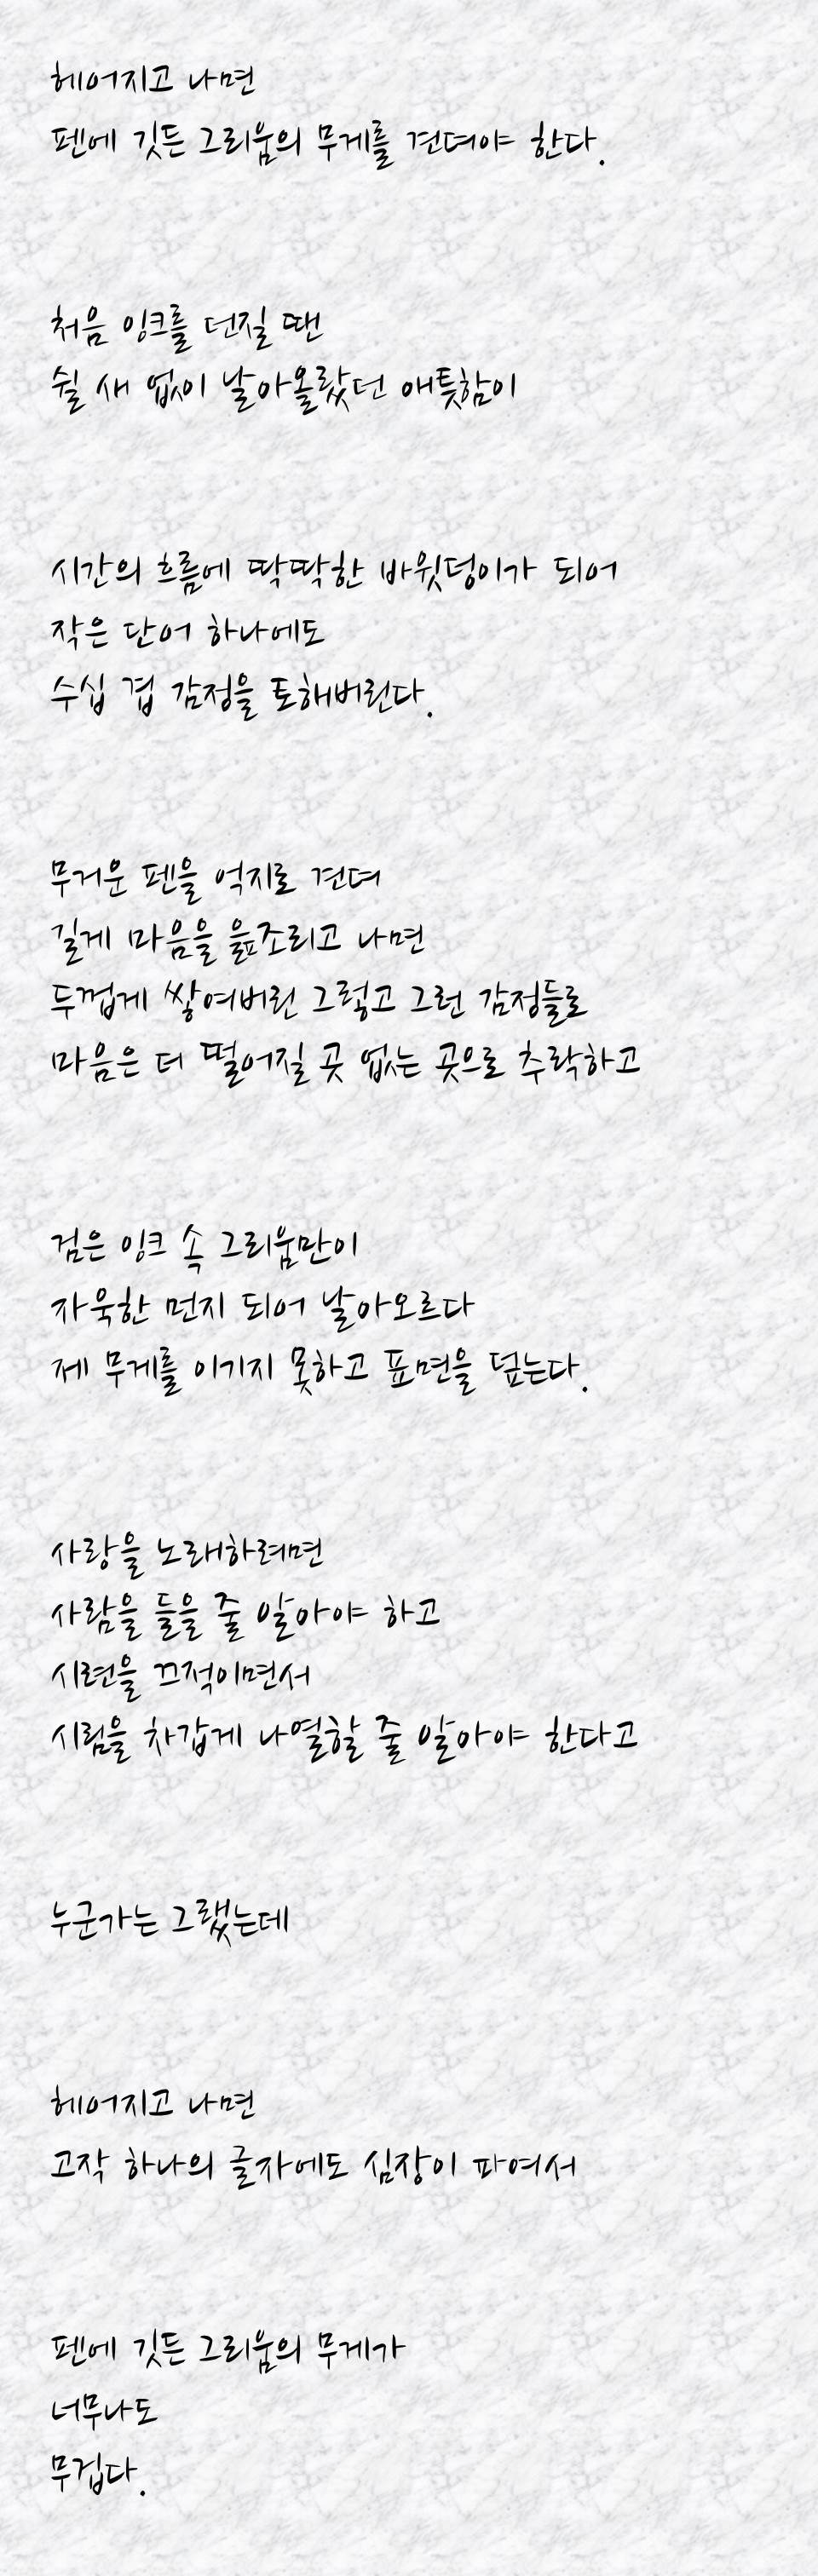 헤어지고 나면
펜에 깃든 그리움의 무게를 견뎌야 한다.
처음 잉크를 던질 땐
쉴 새 없이 날아올랐던 애틋함이
시간의 흐름에 딱딱한 바윗덩이가 되어
작은 단어 하나에도
수십 겹 감정을 토해버린다.
무거운 펜을 억지로 견뎌
길게 마음을 읊조리고 나면
두껍게 쌓여버린 그렇고 그런 감정들로
마음은 더 떨어질 곳 없는 곳으로 추락하고
검은 잉크 속 그리움만이
자욱한 먼지 되어 날아오르다
제 무게를 이기지 못하고 표면을 덮는다.
사랑을 노래하려면
사람을 들을 줄 알아야 하고
시련을 끄적이면서
시림을 차갑게 나열할 줄 알아야 한다고
누군가는 그랬는데
헤어지고 나면
고작 하나의 글자에도 심장이 파여서
펜에 깃든 그리움의 무게가
너무나도
무겁다.